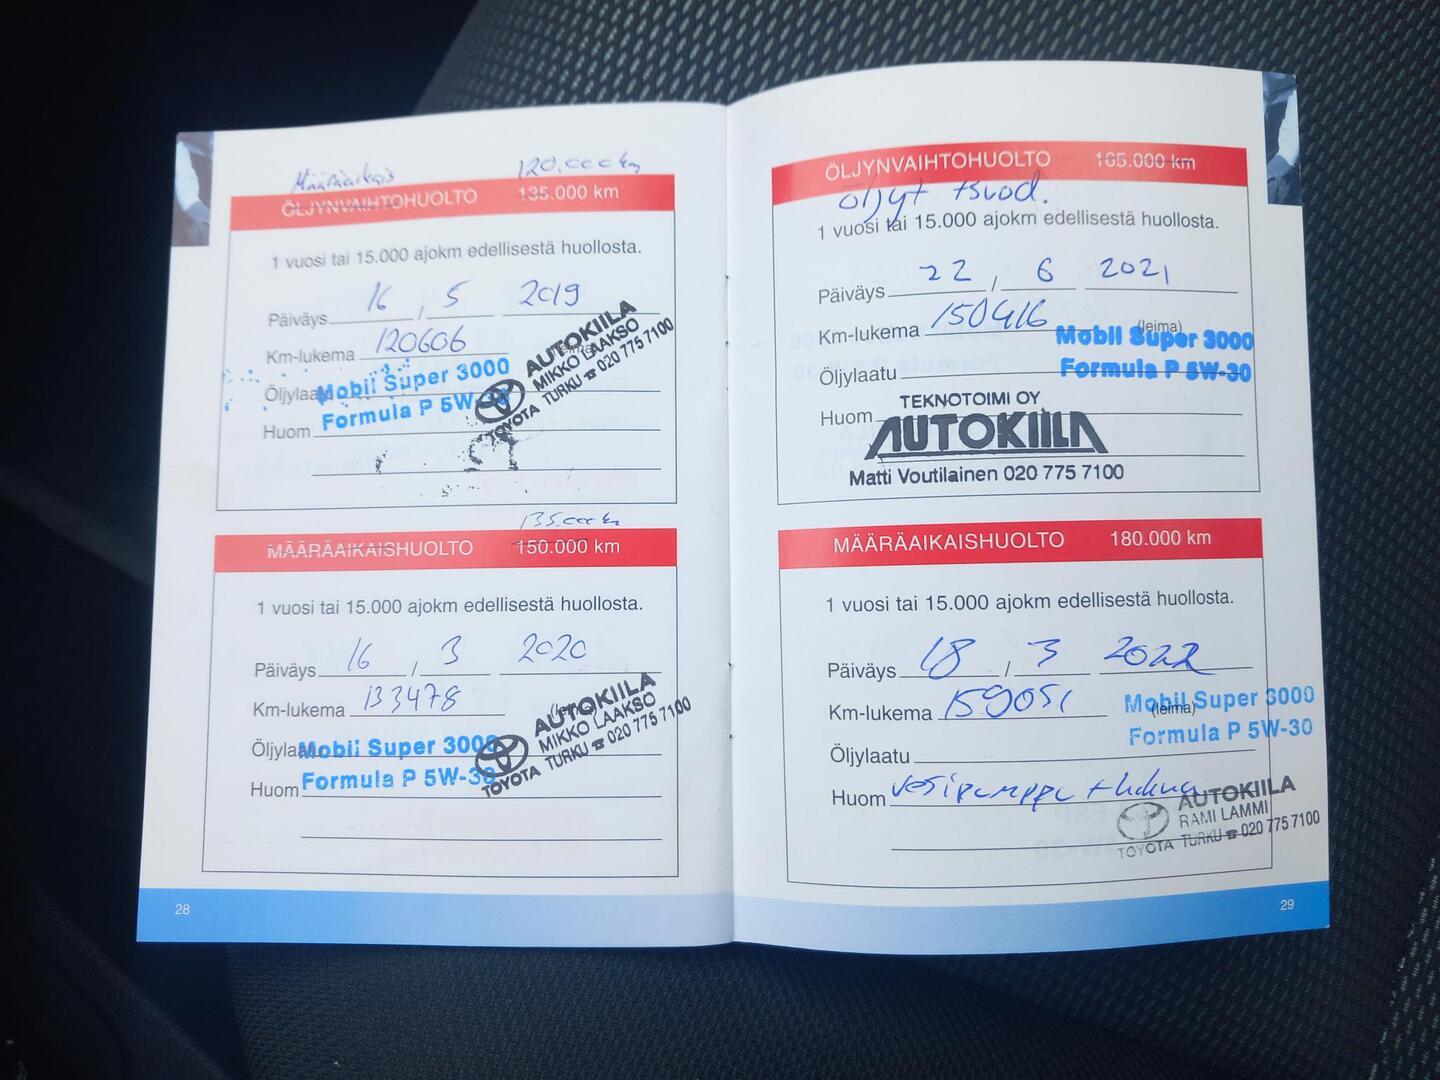 Määräaikais 120.000 km
ÖLJYNVAIHTOHUOLTO 135.000 km
1 vuosi tai 15.000 ajokm edellisestä huollosta.
Päiväys 16 , 5 2019
Km-lukema 120606
Öljylaatu
Mobil Super 3000
Formula P 5W-30
AUTOKIILA
MIKKO LAAKSO
TOYOTA TURKU ☎ 020 775 7100
Huom
135.000 km
MÄÄRÄAIKAISHUOLTO 150.000 km
1 vuosi tai 15.000 ajokm edellisestä huollosta.
Päiväys 16 / 3 2020
Km-lukema 133478
(leima)
Mobil Super 3000
Formula P 5W-30
AUTOKIILA
MIKKO LAAKSO
TOYOTA TURKU ☎ 020 775 7100
Huom
28
ÖLJYNVAIHTOHUOLTO 165.000 km
öljyt + suod.
1 vuosi tai 15.000 ajokm edellisestä huollosta.
Päiväys 22 / 6 2021
Km-lukema 150416
(leima)
Öljylaatu
Mobil Super 3000
Formula P 5W-30
Huom
TEKNOTOIMI OY
AUTOKIILA
Matti Voutilainen 020 775 7100
MÄÄRÄAIKAISHUOLTO 180.000 km
1 vuosi tai 15.000 ajokm edellisestä huollosta.
Päiväys 18 / 3 2022
Km-lukema 159051
(leima)
Mobil Super 3000
Formula P 5W-30
Öljylaatu
Huom vesipumppu + hihna
AUTOKIILA
RAMI LAMMI
TOYOTA TURKU ☎ 020 775 7100
29